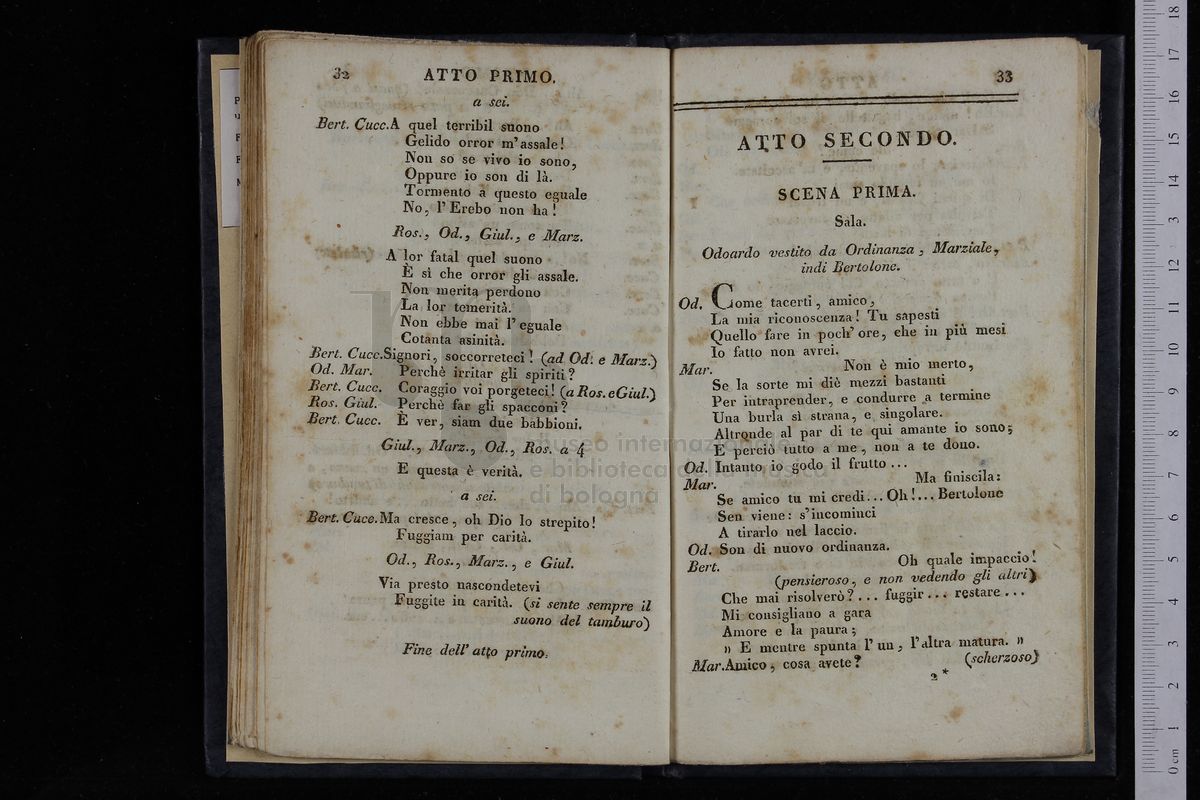 32 ATTO PRIMO.
a sei.
Bert. Cucc. A quel terribil suono
Gelido orror m'assale!
Non so se vivo io sono,
Oppure io son di là.
Tormento a questo eguale
No, l'Erebo non ha!
Ros., Od., Giul., e Marz.
A lor fatal quel suono
È sì che orror gli assale.
Non merita perdono
La lor temerità.
Non ebbe mai l'eguale
Cotanta asinità.
Bert. Cucc. Signori, soccorreteci! (ad Od. e Marz.)
Od. Mar. Perchè irritar gli spiriti?
Bert. Cucc. Coraggio voi porgeteci! (a Ros. e Giul.)
Ros. Giul. Perchè far gli spacconi?
Bert. Cucc. È ver, siam due babbioni.
Giul., Marz., Od., Ros. a 4
E questa è verità.
a sei.
Bert. Cucc. Ma cresce, oh Dio lo strepito!
Fuggiam per carità.
Od., Ros., Marz., e Giul.
Via presto nascondetevi
Fuggite in carità. (si sente sempre il
suono del tamburo)
Fine dell' atto primo.
33
ATTO SECONDO.
SCENA PRIMA.
Sala.
Odoardo vestito da Ordinanza, Marziale,
indi Bertolone.
Od. Come tacerti, amico,
La mia riconoscenza! Tu sapesti
Quello fare in poch' ore, che in più mesi
Io fatto non avrei.
Mar. Non è mio merto,
Se la sorte mi diè mezzi bastanti
Per intraprender, e condurre a termine
Una burla sì strana, e singolare.
Altronde al par di te qui amante io sono;
E perciò tutto a me, non a te dono.
Od. Intanto io godo il frutto ...
Mar. Ma finiscila:
Se amico tu mi credi... Oh!... Bertolone
Sen viene: s'incominci
A tirarlo nel laccio.
Od. Son di nuovo ordinanza.
Bert. Oh quale impaccio!
(pensieroso, e non vedendo gli altri)
Che mai risolverò?... fuggir... restare...
Mi consigliano a gara
Amore e la paura;
» E mentre spunta l'un, l'altra matura. »
Mar. Amico, cosa avete? (scherzoso)
2 *
museo internazionale
e biblioteca della musica
di bologna